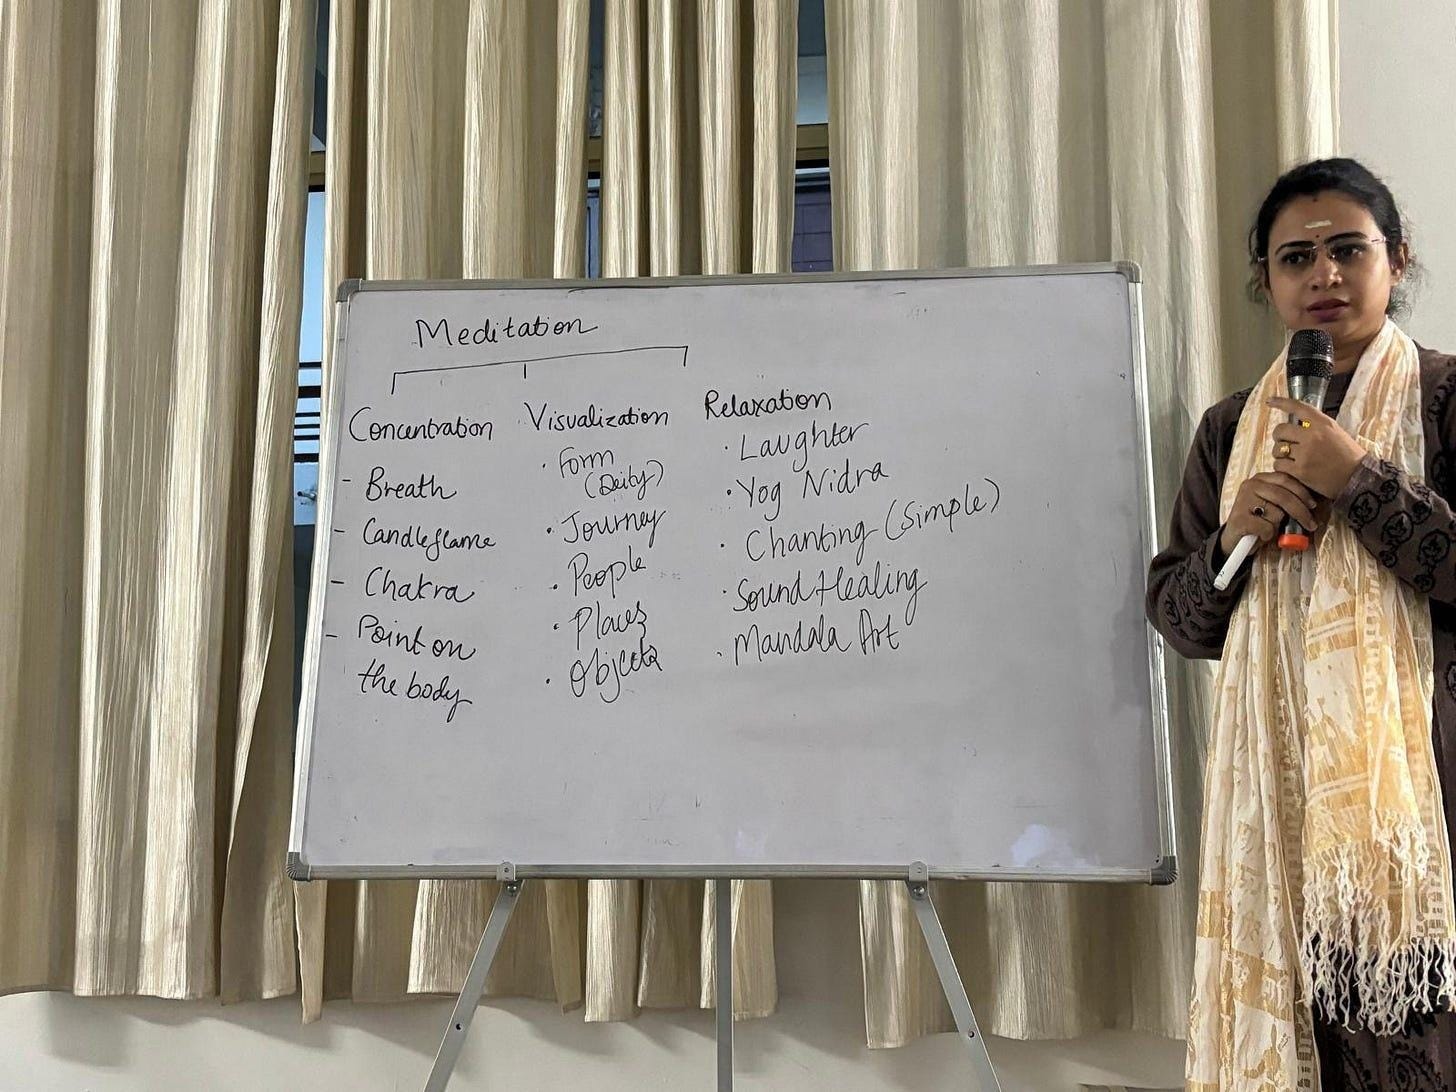 Meditation
Concentration
- Breath
- Candleflame
- Chakra
- Point on
the body
Visualization
· Form
(Deity)
· Journey
· People
· Places
· Objects
Relaxation
· Laughter
· Yog Nidra
· Chanting (Simple)
· Sound Healing
· Mandala Art